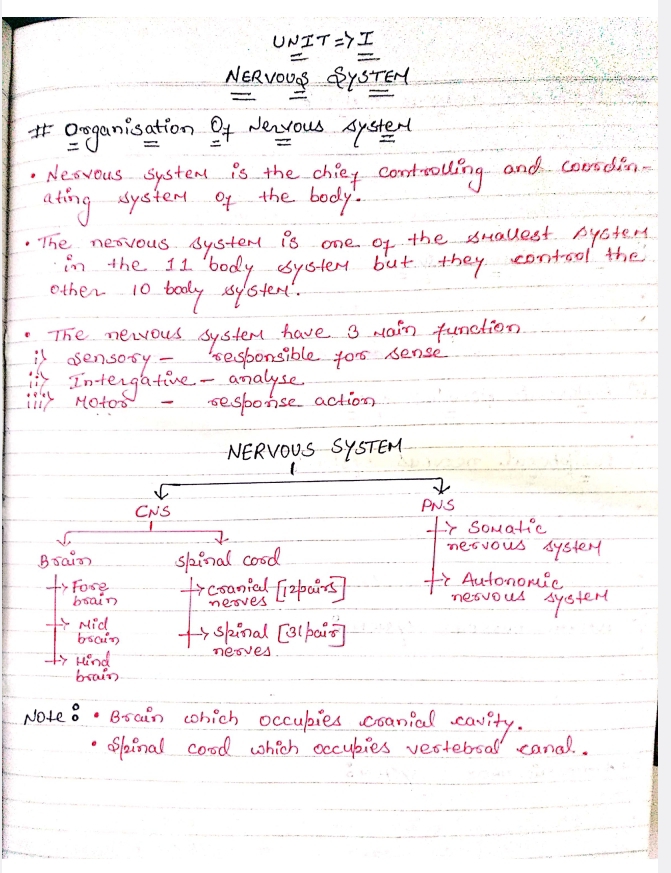 UNIT => I
NERVOUS SYSTEM
# Organisation Of Nervous System
• Nervous system is the chief controlling and coordin-
ating system of the body.
• The nervous system is one of the smallest system
in the 11 body system but they control the
other 10 body system.
• The nervous system have 3 main function
i) Sensory - responsible for sense
ii) Intergative - analyse
iii) Motor - response action
NERVOUS SYSTEM
CNS PNS
Brain Spinal cord
→ Fore brain
→ Mid brain
→ Hind brain
→ cranial [12pairs] nerves
→ spinal [31pair] nerves
→ Somatic nervous system
→ Autonomic nervous system
Note : • Brain which occupies cranial cavity.
• Spinal cord which occupies vertebral canal.